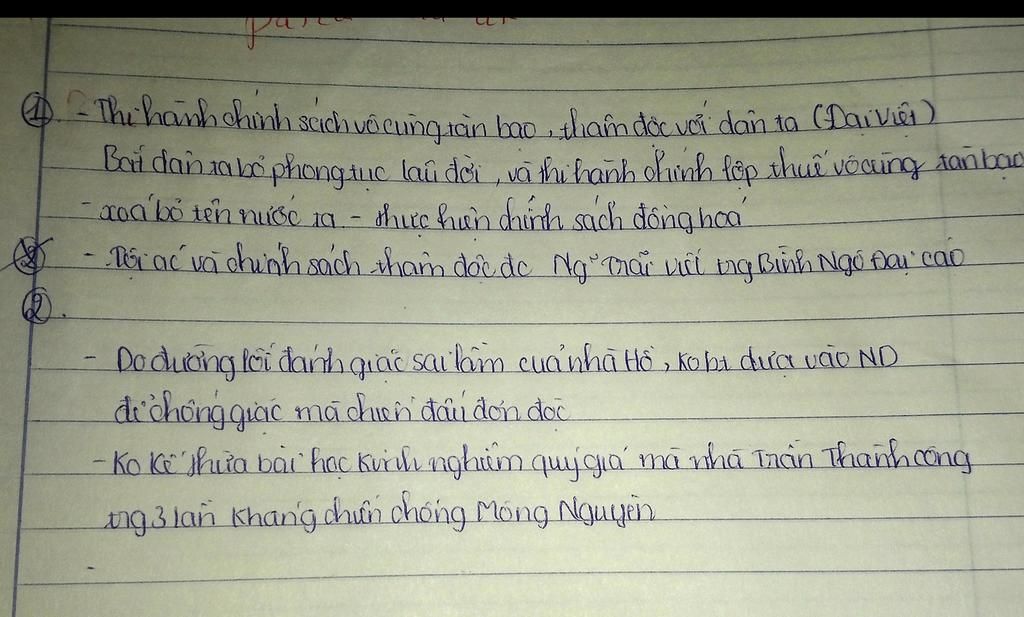 ① - Thi hành chính sách vô cùng tàn bạo, thâm độc với dân ta (Đại Việt)
Bắt dân ta bỏ phong tục lâu đời, và thi hành chính lớp thuế vô cùng tàn bạo
- xoá bỏ tên nước ta - thực hiện chính sách đồng hoá
- Tội ác và chính sách thâm độc đc Ng~ Trãi viết trg Bình Ngô Đại cáo
②.
- Do đường lối đánh giặc sai lầm của nhà Hồ, ko bt dựa vào ND
để chống giặc mà chiến đấu đơn độc
- Ko kế thừa bài học kinh nghiệm quý giá mà nhà Trần Thành công
trg 3 lần kháng chiến chống Mông Nguyên
-